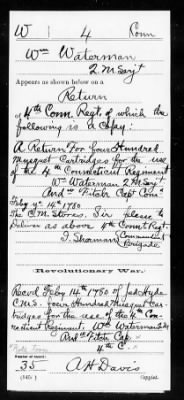 W | 4 | Conn
Wm Waterman
Q.M. Sergt
Appears as shown below on a
Return
of 4th Conn Regt. of which the
following is a Copy:
A Return For four Hundred
Musquet Cartridges for the use
of the 4th Connecticut Regiment
Wm Waterman Q.M. Sgt
Feby 14th 1780
The C.M. Stores. Sir please to
Deliver as above 4th Conn't Regt.
I. Sherman Commandt
Brigade
Revolutionary War.
Recvd Feby 14th 1780 of
C.M.S. four Hundred Musquet Car-
tridges for the use of the 4th Con-
necticut Regiment, Wm Waterman
4th C
Number of record:
35
A H Davis
Copyist.